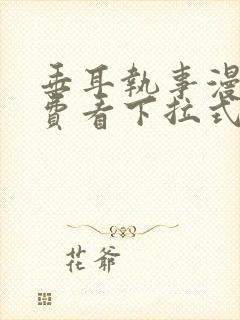 垂耳執事漫
費看下拉式
花爺